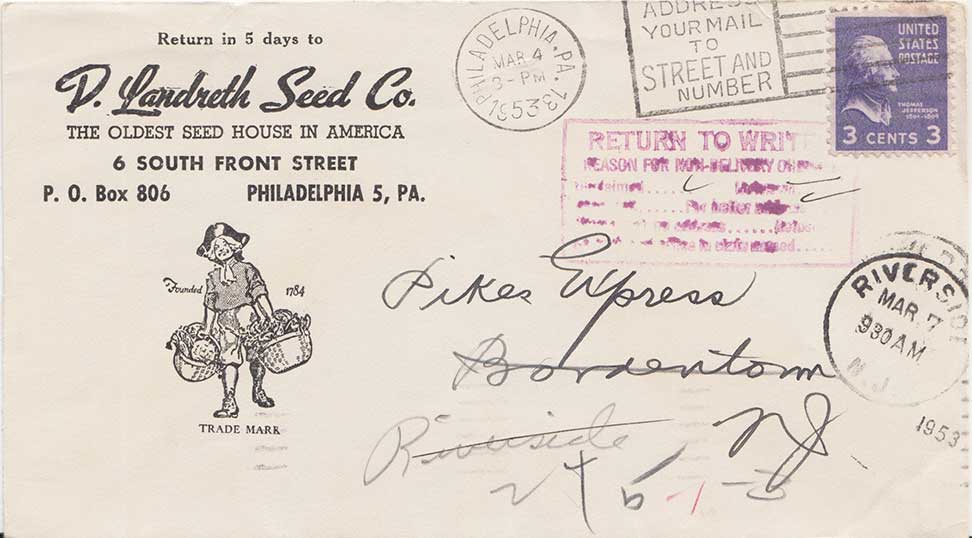 Return in 5 days to
D. Landreth Seed Co.
THE OLDEST SEED HOUSE IN AMERICA
6 SOUTH FRONT STREET
P. O. Box 806 PHILADELPHIA 5, PA.
Founded 1784
TRADE MARK
PHILADELPHIA, PA. 13
MAR 4
3-PM
1953
ADDRESS
YOUR MAIL
TO
STREET AND
NUMBER
UNITED
STATES
POSTAGE
THOMAS
JEFFERSON
3 CENTS 3
RETURN TO
REASON FOR NON-DELIVERY
Pikes Express
Bordentown
Riverside NJ
RIVERSIDE
MAR 7
930 AM
N.J.
1953